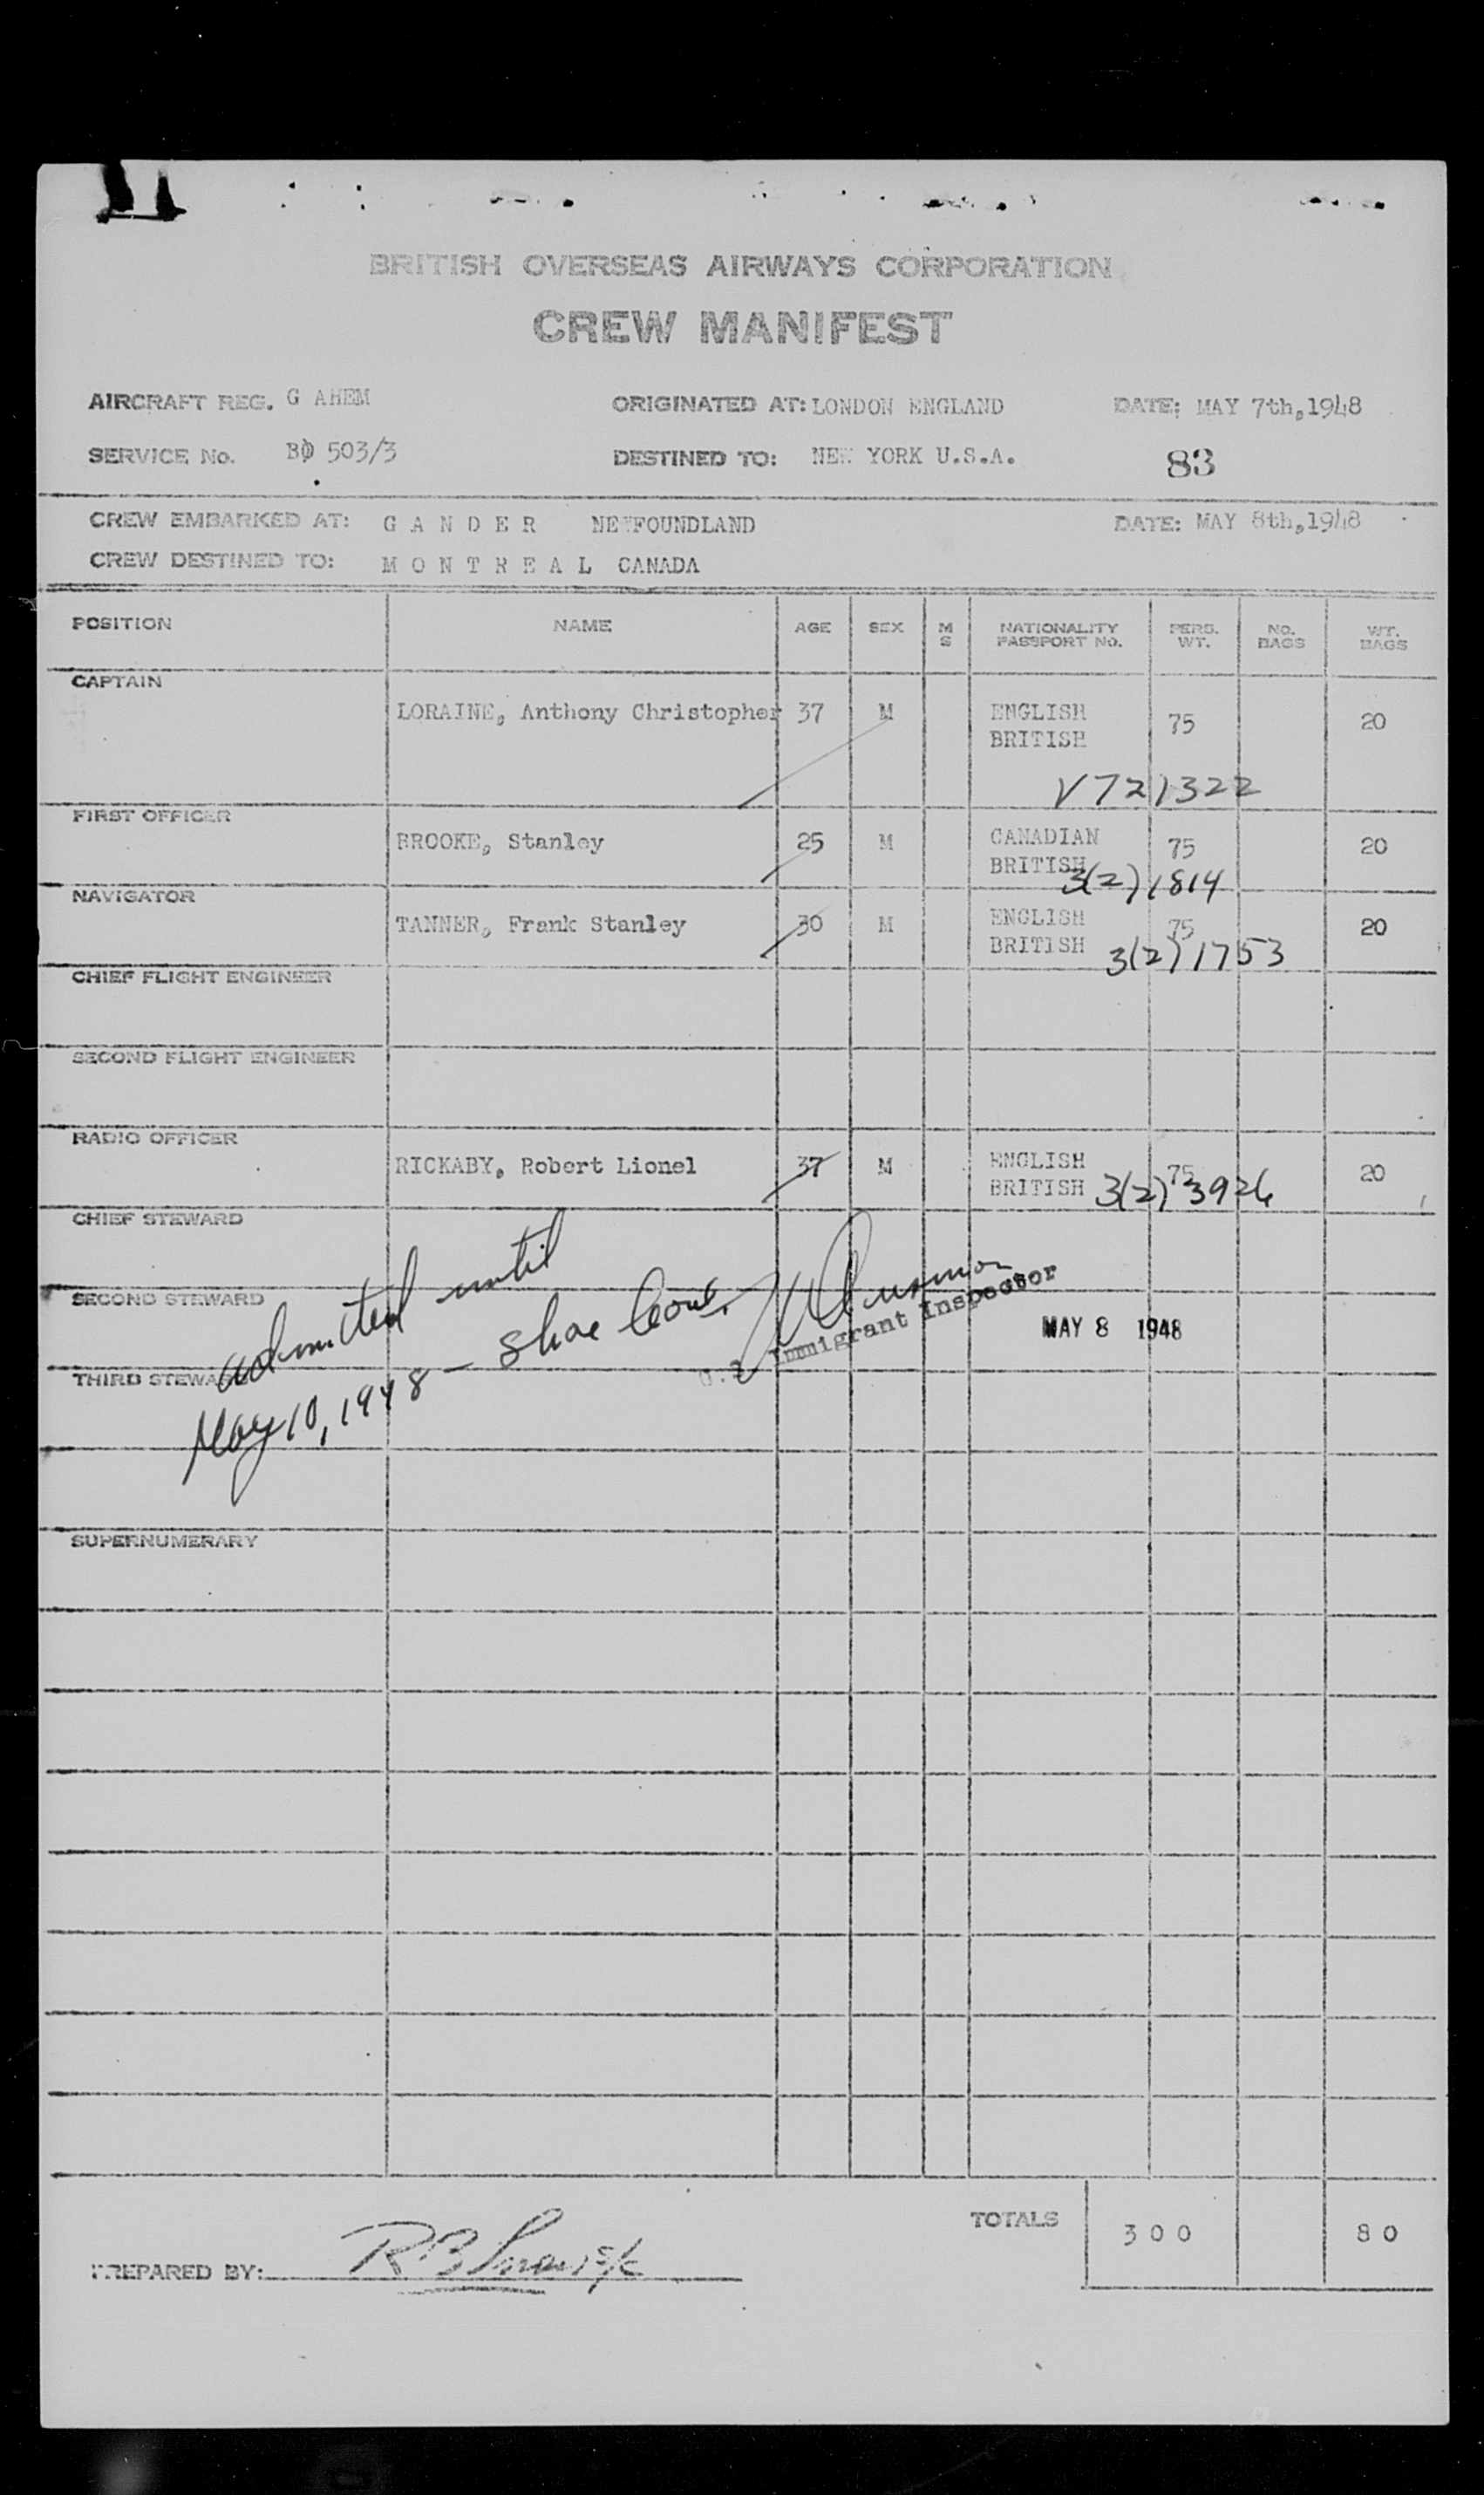 BRITISH OVERSEAS AIRWAYS CORPORATION
CREW MANIFEST
AIRCRAFT REG. G AHEM ORIGINATED AT: LONDON ENGLAND DATE: MAY 7th, 1948
SERVICE No. BO 503/3 DESTINED TO: NEW YORK U.S.A. 83
CREW EMBARKED AT: G A N D E R NEWFOUNDLAND DATE: MAY 8th, 1948
CREW DESTINED TO: M O N T R E A L CANADA
POSITION NAME AGE SEX M S NATIONALITY PASSPORT No. PERS. WT. NO. BAGS WT. BAGS
CAPTAIN
LORAINE, Anthony Christopher 37 M ENGLISH 75 20
BRITISH
V721322
FIRST OFFICER
BROOKE, Stanley 25 M CANADIAN 75 20
BRITISH 3(2) 1814
NAVIGATOR
TANNER, Frank Stanley 30 M ENGLISH 75 20
BRITISH 3(2) 1753
CHIEF FLIGHT ENGINEER
SECOND FLIGHT ENGINEER
RADIO OFFICER
RICKABY, Robert Lionel 37 M ENGLISH 75 20
BRITISH 3(2) 3926
CHIEF STEWARD
SECOND STEWARD
admitted until
May 10, 1948 - shore leave.
Immigrant Inspector
MAY 8 1948
THIRD STEWARD
SUPERNUMERARY
TOTALS 300 80
PREPARED BY: